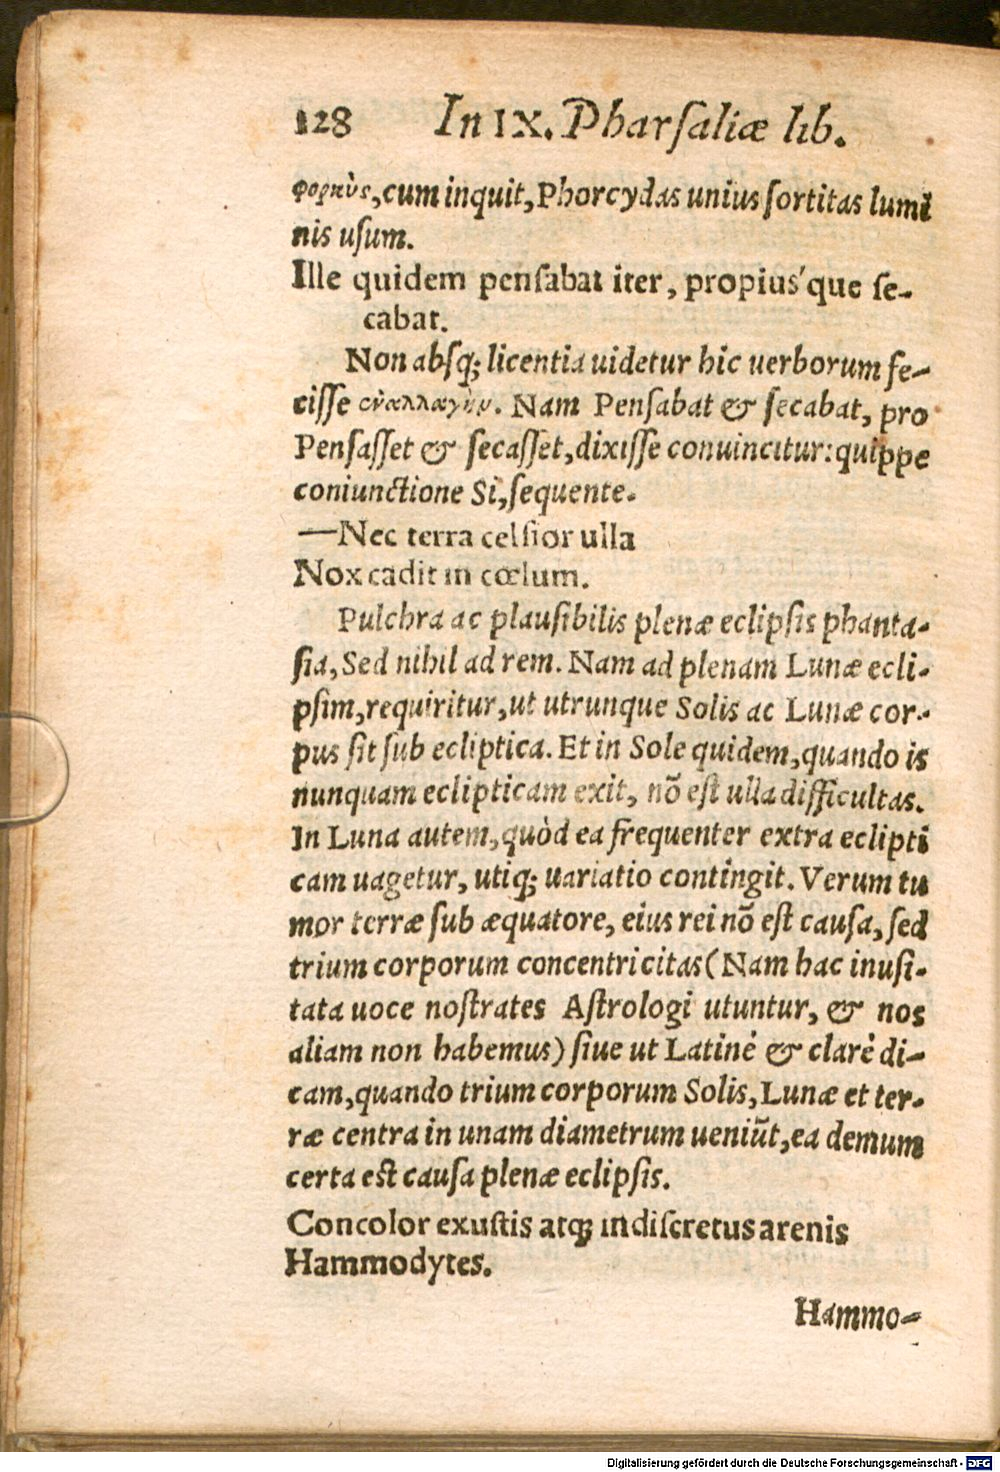 128 In IX. Pharsaliæ lib.
φορκὺς, cum inquit, Phorcydas unius ſortitas lumi
nis uſum.
Ille quidem penſabat iter, propius'que ſe-
cabat.
Non abſq; licentia uidetur hic uerborum fe-
ciſſe ἐναλλαγὴν. Nam Penſabat & ſecabat, pro
Penſaſſet & ſecaſſet, dixiſſe conuincitur: quippe
coniunctione Si, ſequente.
—Nec terra celſior ulla
Nox cadit in cœlum.
Pulchra ac plauſibilis plenæ eclipſis phanta-
ſia, Sed nihil ad rem. Nam ad plenam Lunæ ecli-
pſim, requiritur, ut utrunque Solis ac Lunæ cor-
pus ſit ſub ecliptica. Et in Sole quidem, quando is
nunquam eclipticam exit, nõ eſt ulla difficultas.
In Luna autem, quòd ea frequenter extra eclipti
cam uagetur, utiq; uariatio contingit. Verum tu
mor terræ ſub æquatore, eius rei nõ eſt cauſa, ſed
trium corporum concentricitas (Nam hac inuſi-
tata uoce noſtrates Aſtrologi utuntur, & nos
aliam non habemus) ſiue ut Latinè & clarè di-
cam, quando trium corporum Solis, Lunæ et ter-
ræ centra in unam diametrum ueniũt, ea demum
certa eſt cauſa plenæ eclipſis.
Concolor exuſtis atq; indiſcretus arenis
Hammodytes.
Hammo-
Digitalisierung gefördert durch die Deutsche Forschungsgemeinschaft - DFG